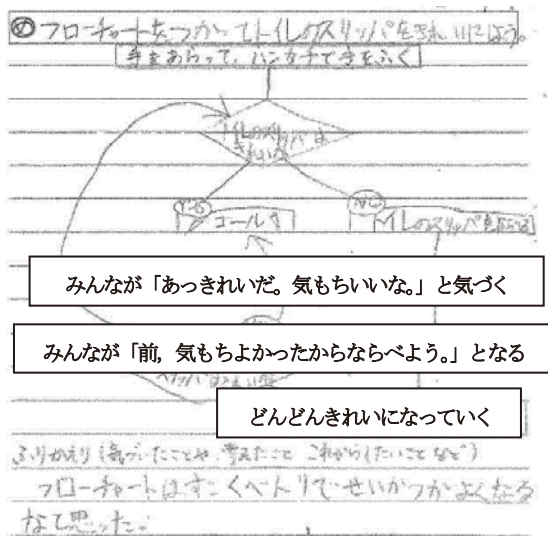 め フローチャートをつかってトイレのスリッパをきれいにしよう。
手をあらって、ハンカチで手をふく
トイレのスリッパは
きれいか
ゴール
トイレのスリッパを
みんなが「あっきれいだ。気もちいいな。」と気づく
みんなが「前，気もちよかったからならべよう。」となる
どんどんきれいになっていく
ふりかえり(気づいたことや 考えたこと これからしたいことなど)
フローチャートはすごくべんりで せいかつがよくなる
なて思った。